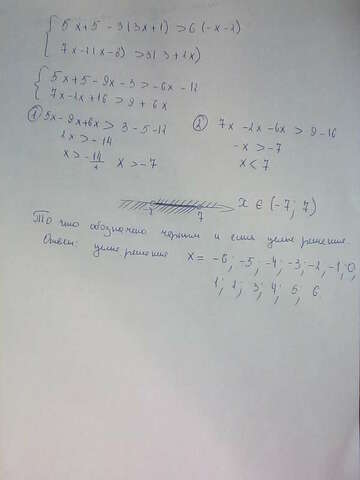 5x+5-3(3x+1) > 6(-x-2)
7x-2(x-8) > 3(3+2x)
5x+5-9x-3 > -6x-12
7x-2x+16 > 9+6x
① 5x-9x+6x > 3-5-12
2x > -14
x > -14/2 x > -7
② 7x-2x-6x > 9-16
-x > -7
x < 7
-7 7 x ∈ (-7; 7)
То что обозначено черным и есть целые решение.
Ответ: целые решение x = -6; -5; -4; -3; -2, -1; 0;
1; 2; 3; 4; 5; 6